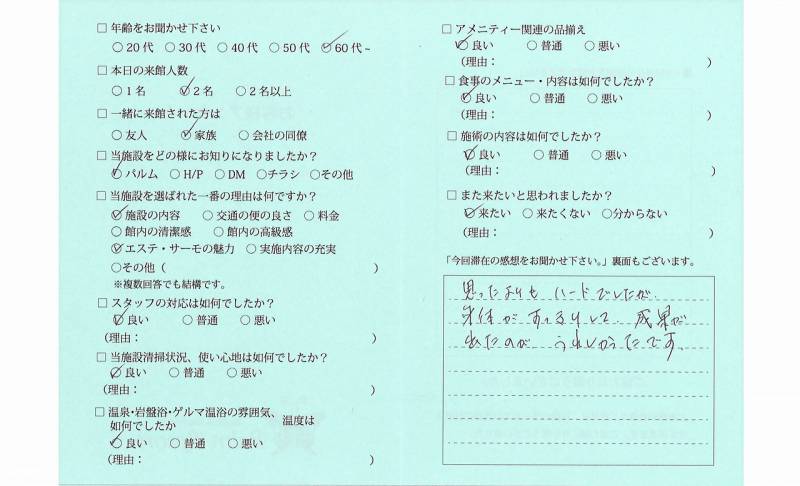 □ 年齢をお聞かせ下さい
○ 20 代 ○ 30 代 ○ 40 代 ○ 50 代 ○ 60 代 ~
□ 本日の来館人数
○ 1 名 ○ 2 名 ○ 2 名以上
□ 一緒に来館された方は
○ 友人 ○ 家族 ○ 会社の同僚
□ 当施設をどの様にお知りになりましたか?
○ パルム ○ H/P ○ DM ○チラシ ○その他
□ 当施設を選ばれた一番の理由は何ですか?
○ 施設の内容 ○ 交通の便の良さ ○ 料金
○ 館内の清潔感 ○ 館内の高級感
○ エステ・サーモの魅力 ○ 実施内容の充実
○その他 ( )
※複数回答でも結構です。
□ スタッフの対応は如何でしたか?
○ 良い ○ 普通 ○ 悪い
(理由: )
□ 当施設清掃状況、使い心地は如何でしたか?
○ 良い ○ 普通 ○ 悪い
(理由: )
□ 温泉・岩盤浴・ゲルマ温浴の雰囲気、 温度は
如何でしたか
○ 良い ○ 普通 ○ 悪い
(理由: )
□ アメニティー関連の品揃え
○ 良い ○ 普通 ○ 悪い
(理由: )
□ 食事のメニュー・内容は如何でしたか?
○ 良い ○ 普通 ○ 悪い
(理由: )
□ 施術の内容は如何でしたか?
○ 良い ○ 普通 ○ 悪い
(理由: )
□ また来たいと思われましたか?
○ 来たい ○ 来たくない ○分からない
(理由: )
「今回滞在の感想をお聞かせ下さい。」裏面もございます。
思ったよりも ハードでしたが
身体が すっきりして 成果が
出たのが うれしかったです。